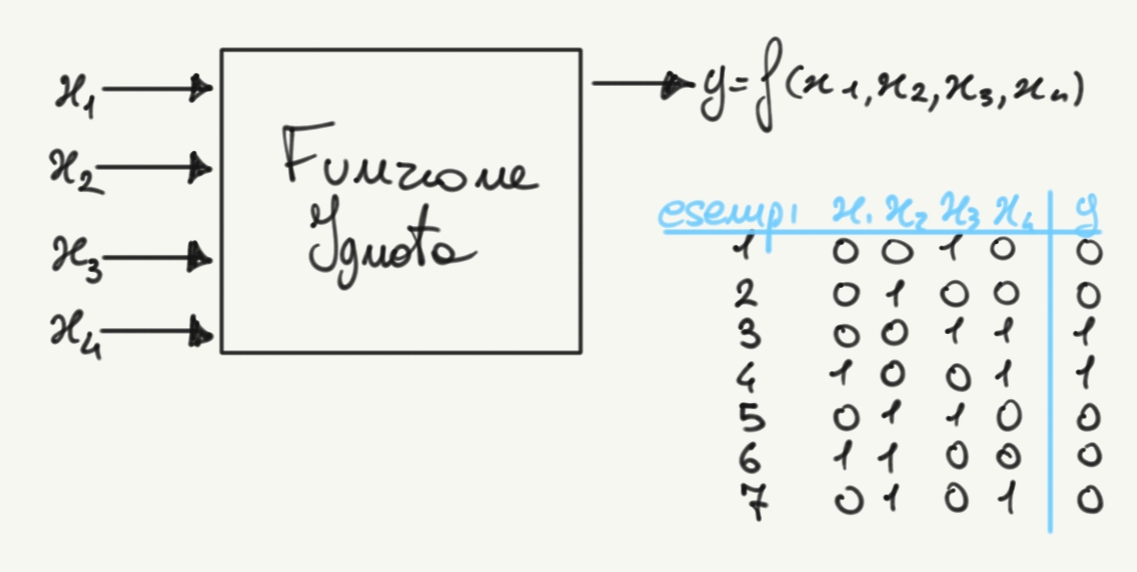 x1
x2
x3
x4
Funzione
Ignota
y=f(x1,x2,x3,x4)
esempi x1 x2 x3 x4 y
1 0 0 1 0 0
2 0 1 0 0 0
3 0 0 1 1 1
4 1 0 0 1 1
5 0 1 1 0 0
6 1 1 0 0 0
7 0 1 0 1 0